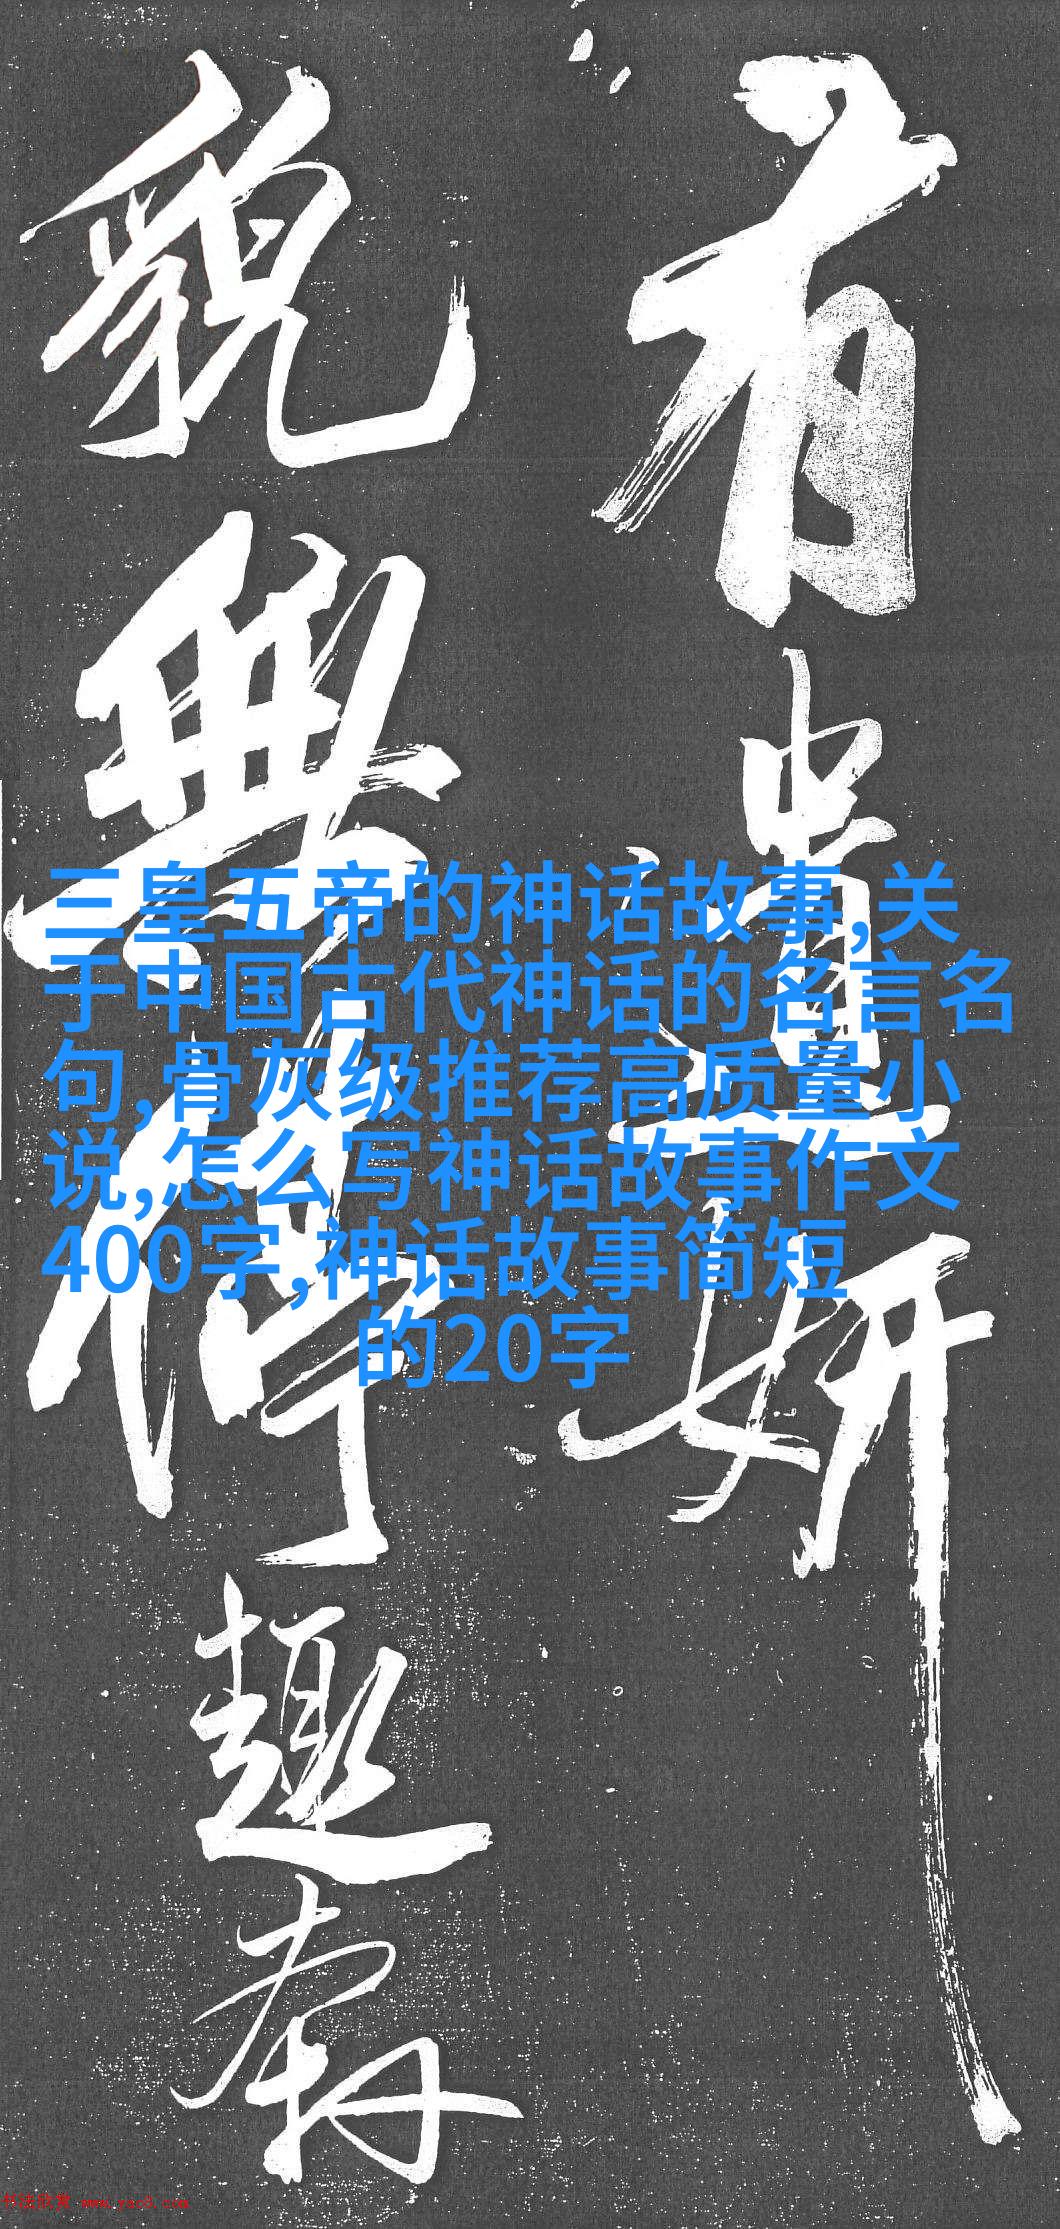 有遗妍
貌无停趣
三皇五帝的神话故事,关
于中国古代神话的名言名
句,骨灰级推荐高质量小
说,怎么写神话故事作文
400字,神话故事简短
的20字